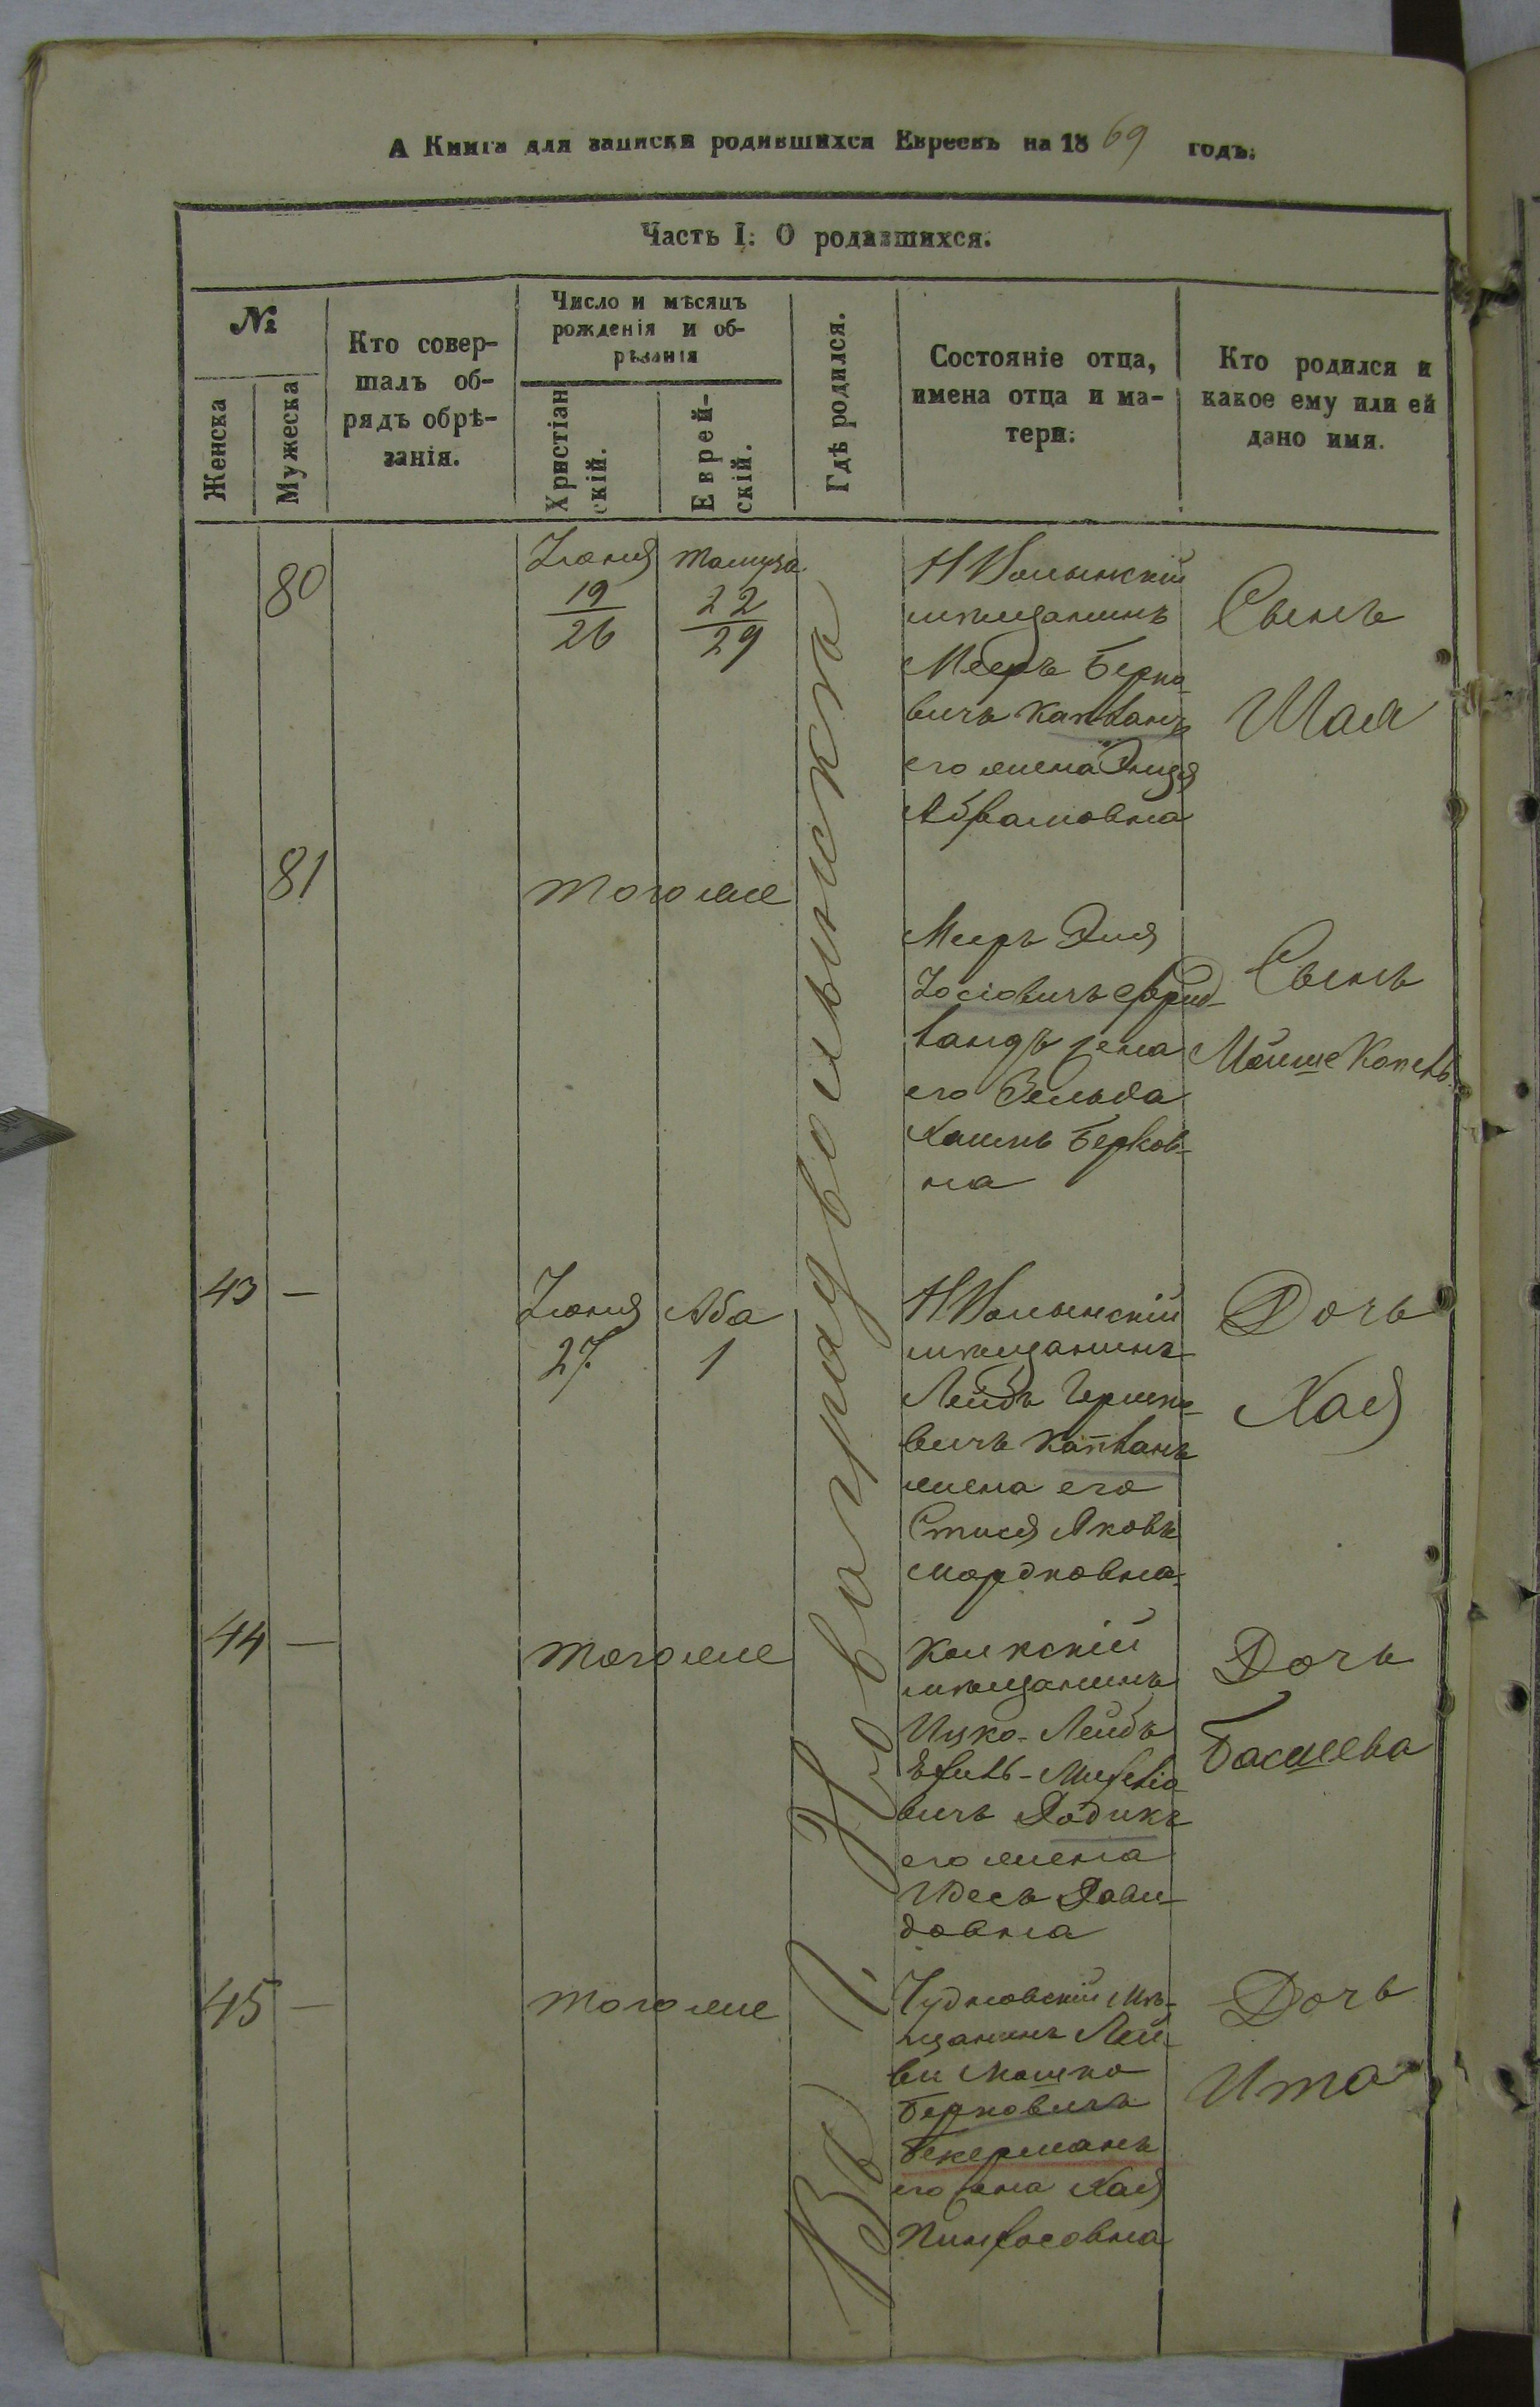 А Книга для записки родившихся Евреевъ на 1869 годъ.
Часть I: О родившихся.
№
Женска
Мужеска
Кто совер-
шалъ об-
рядъ обрѣ-
занія.
Число и мѣсяцъ
рожденія и об-
рѣзанія
Христіан
скій.
Еврей-
скій.
Гдѣ родился.
Состояніе отца,
имена отца и ма-
тери:
Кто родился и
какое ему или ей
дано имя.
Въ г. Новоградволынскѣ
80
Іюня
19
26
Тамуза
22
29
НВолынскій
мѣщанинъ
Мееръ Берко-
вичъ Капланъ
его жена
Абрамовна
Сынъ
Шая
81
Тогоже
Мееръ Эля
Іосіовичъ Фрид-
ландъ жена
его Зельда
Берков-
на
Сынъ
Мойше Копель
43 —
Іюня
27.
Аба
1
НВолынскій
мѣщанинъ
Лейбъ Гершко-
вичъ Капланъ
жена его
Стися Яковъ
Мордковна
Дочь
Хая
44 —
Тогоже
Колкскій
мѣщанинъ
Ицко-Лейбъ
вичъ Додикъ
его жена
Идесъ Дави-
довна
Дочь
Басшева
45 —
Тогоже
Чудновскій мѣ-
щанинъ Лей-
ви Мошко
Берковичъ
Бекерманъ
его жена Хая
Пинхасовна
Дочь
Ита